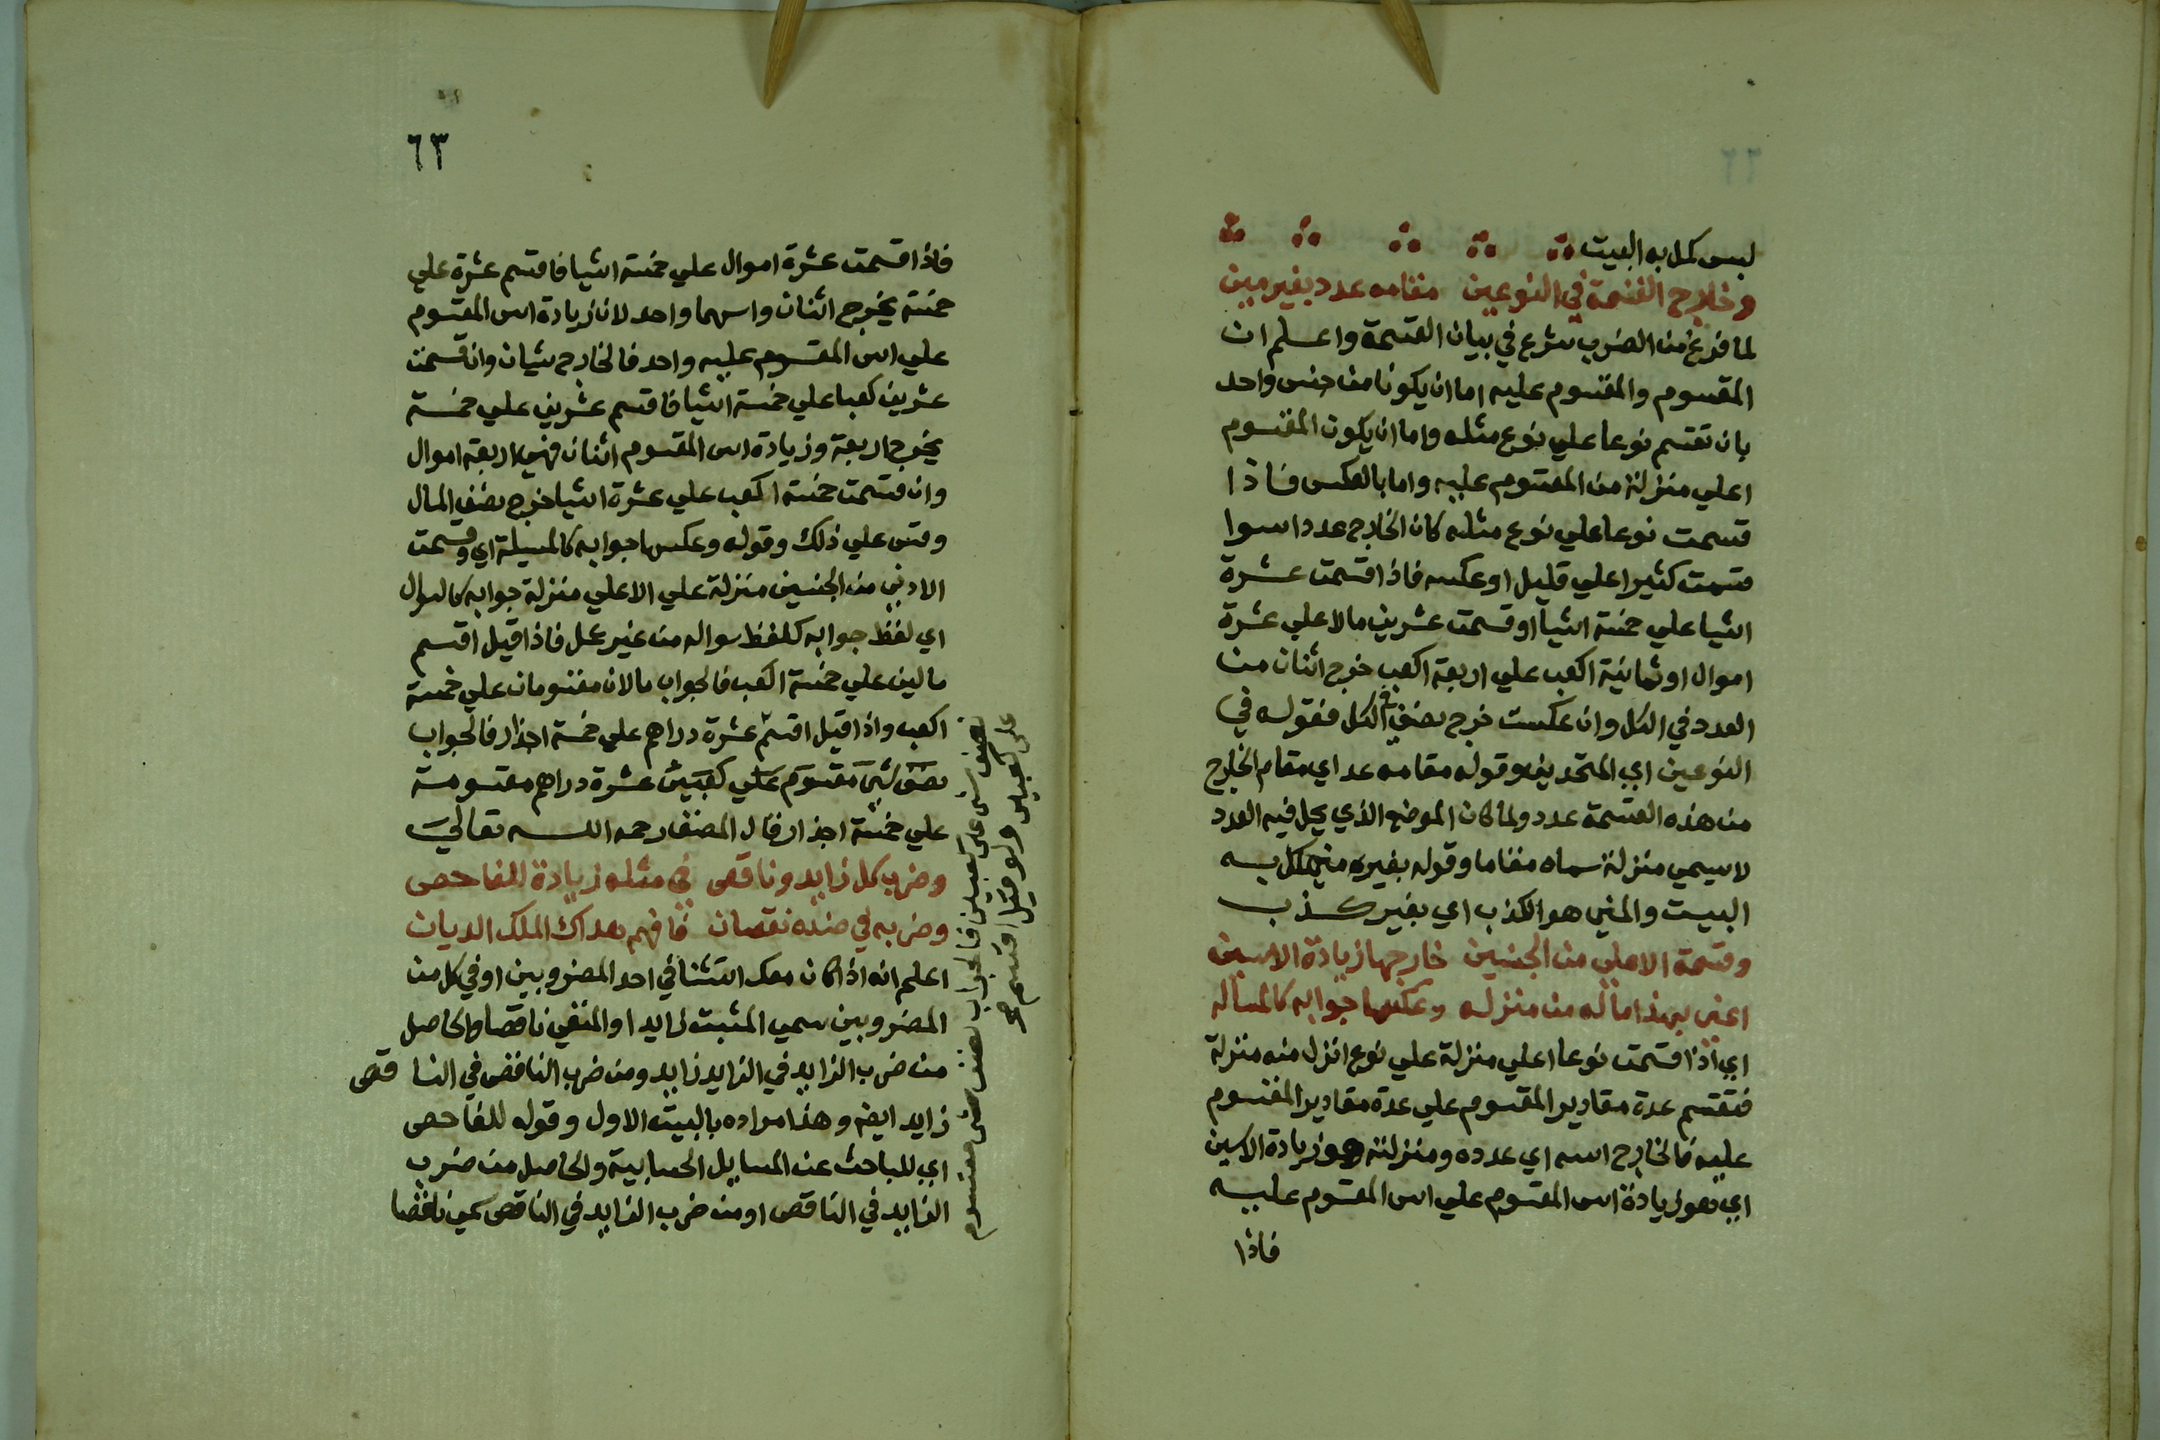 لبس كمل به البيت
وخارج القسمة في النوعين مقامه عدد بغير مين
لما فرغ من الضرب شرع في بيان القسمة واعلم ان
المقسوم والمقسوم عليه اما ان يكونا من جنس واحد
بان تقسم نوعا علي نوع مثله واما ان يكون المقسوم
اعلي منزلة من المقسوم عليه واما بالعكس فاذا
قسمت نوعا علي نوع مثله كان الخارج عددا سوا
قسمت كثيرا علي قليل او عكسه فاذا قسمت عشرة
اشيا علي خمسة اشيا او قسمت عشرين مالا علي عشرة
اموال او ثمانية اكعب علي اربعة اكعب خرج اثنان من
العدد في الكل وان عكست خرج نصف في الكل فقوله في
النوعين اي المتحدين وقوله مقامه عدد اي مقام الخارج
من هذه القسمة عدد ولما كان الموضع الذي يحل فيه العدد
لا يسمي منزلة سماه مقاما وقوله بغير مين كمل به
البيت والمين هو الكذب اي بغير كذب
وقسمة الاعلي من الجنسين خارجها زيادة الاسين
اعني بهذا ماله من منزله وعكسها جوابه كالمساله
اي اذا قسمت نوعا اعلي منزلة علي نوع انزل منه منزلة
فتقسم عدة مقادير المقسوم علي عدة مقادير المقسوم
عليه فالخارج اسه اي عدده ومنزلته هو زيادة الاسين
اي هو زيادة اس المقسوم علي اس المقسوم عليه
فاذا
٦٣
فاذا قسمت عشرة اموال علي خمسة اشيا فاقسم عشرة علي
خمسة يخرج اثنان واسهما واحد لان زيادة اس المقسوم
علي اس المقسوم عليه واحد فالخارج شيان وان قسمت
عشرين كعبا علي خمسة اشيا فاقسم عشرين علي خمسة
يخرج اربعة وزيادة اس المقسوم اثنان فهي اربعة اموال
وان قسمت خمسة اكعب علي عشرة اشيا خرج نصف المال
وقس علي ذلك وقوله وعكسها جوابه كالمسيلة اي وقسمت
الادني من الجنسين منزلة علي الاعلي منزلة جوابه كالسوال
اي لفظ جوابه كلفظ سواله من غير عمل فاذا قيل اقسم
مالين علي خمسة اكعب فالجواب مالان مقسومان علي خمسة
اكعب واذا قيل اقسم عشرة دراهم علي خمسة اجذار فالجواب
نصف شي مقسوم علي كعبين عشرة دراهم مقسومة
علي خمسة اجذار قال المصنف رحمه الله تعالي
وضرب كل زايد وناقص في مثله زيادة للفاحص
وضربه في ضده نقصان فافهم هداك الملك الديان
اعلم انه اذا كان معك استثنا في احد المضروبين او في كل من
المضروبين سمي المثبت زايدا والمنفي ناقصا والحاصل
من ضرب الزايد في الزايد زايد ومن ضرب الناقص في الناقص
زايد ايضا وهذا مراده بالبيت الاول وقوله للفاحص
اي للباحث عن المسايل الحسابية والحاصل من ضرب
الزايد في الناقص او من ضرب الزايد في الناقص يسمي ناقصا
نصف شي علي كعبين فالجواب نصف شي مقسوم
علي كعبين ولو قيل اقسم